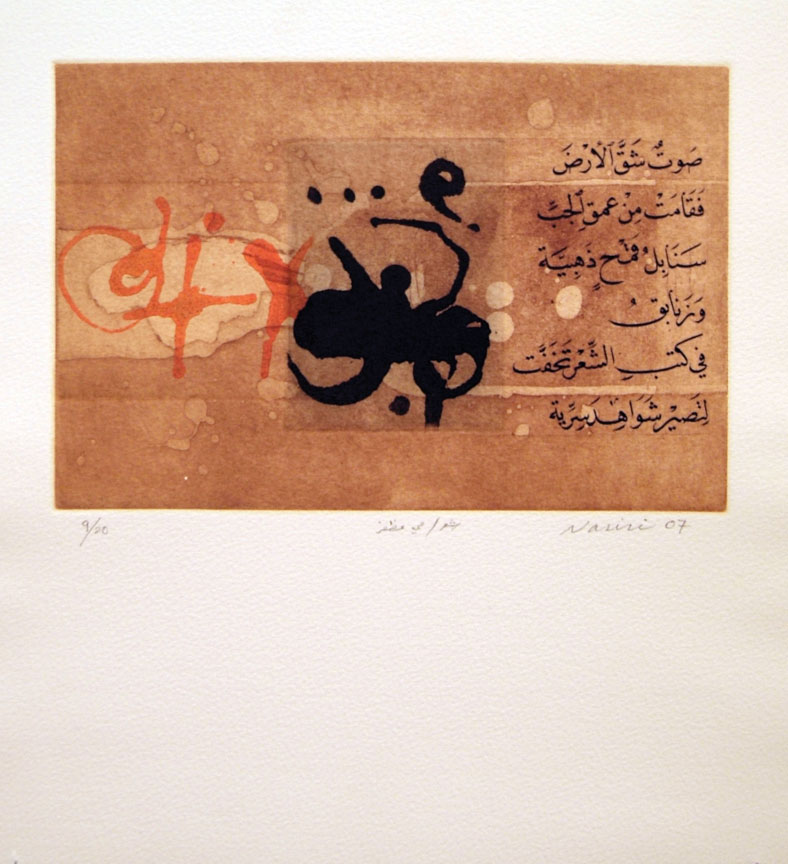 صَوتٌ شَقَّ ٱلْأَرْضَ
فَقَامَتْ مِنْ عمقِ ٱلجبِّ
سَنَابِلُ قَمْحٍ ذَهَبِيَّة
وَزَنابقُ
في كتبِ الشِّعْرِ تَخَفَّت
لِتَصيْرَ شَوَاهِدَ سِرِّية
9/20
Nasiri 07